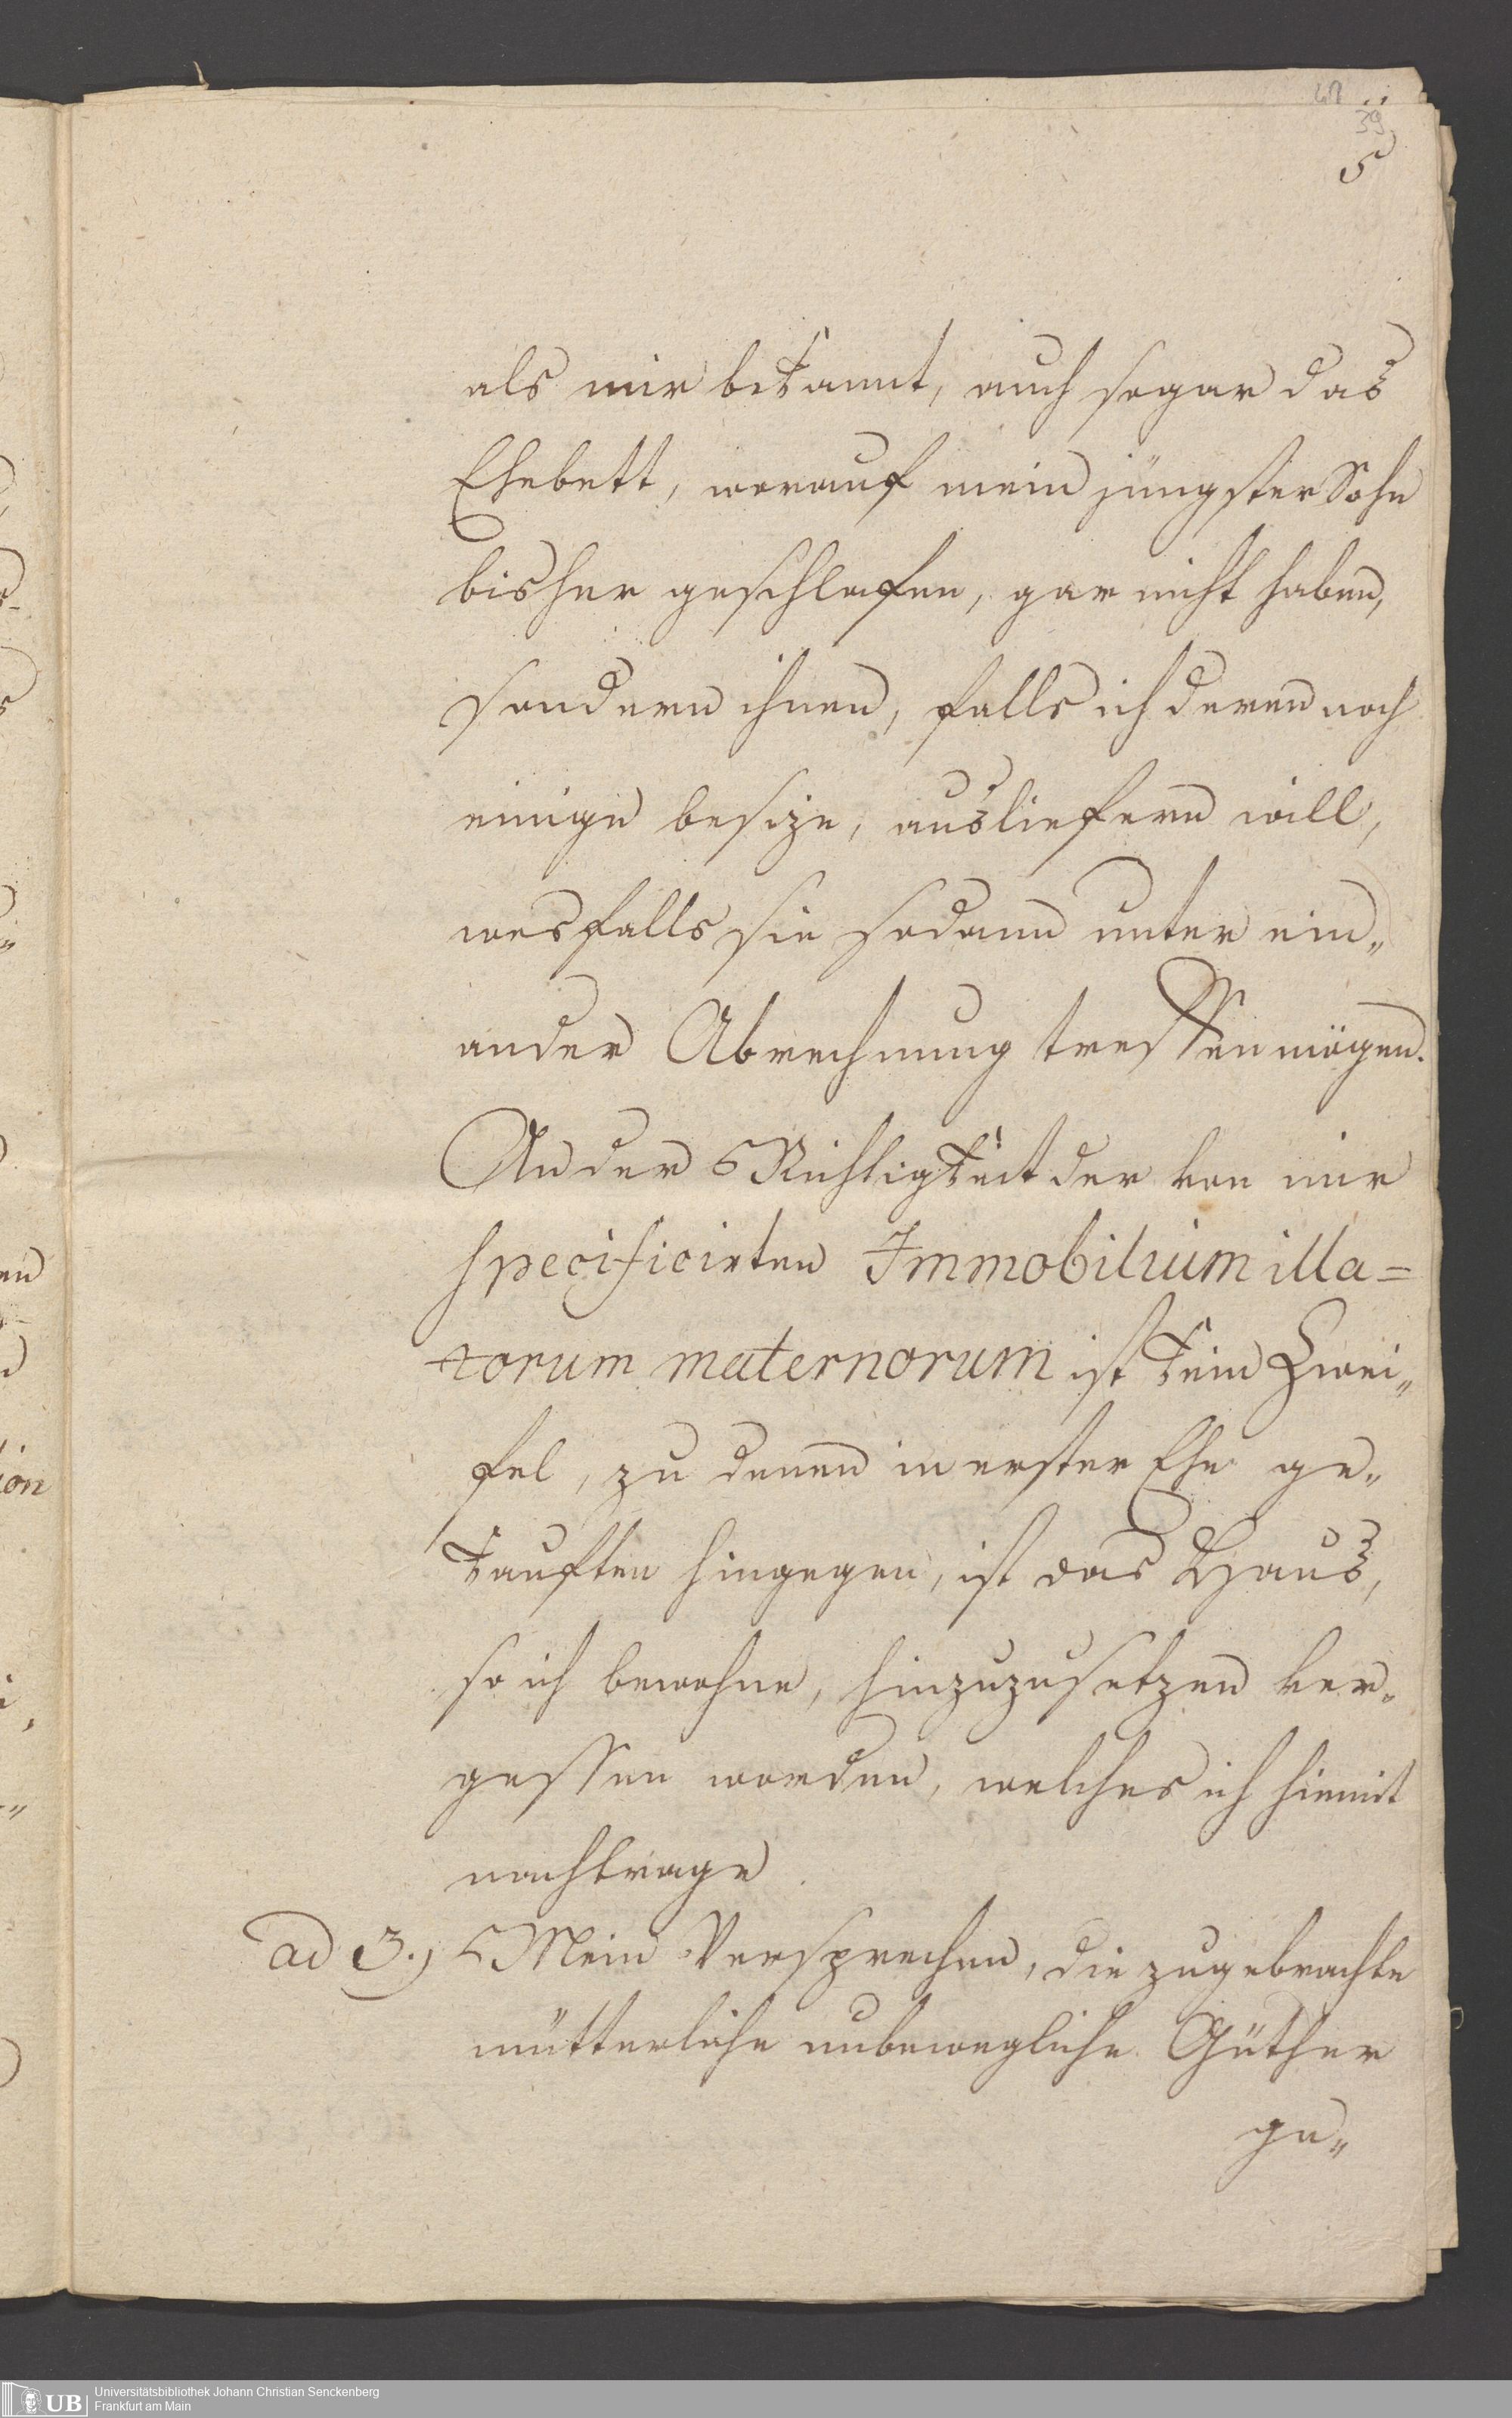 39
5
als mir bekannt, auch sogar das
Ehebett, worauf mein jüngster Sohn
bisher geschlafen, gar nicht haben,
sondern ihnen, falls ich deren noch
einige besize, ausliefern will,
wesfalls sie sodann unter ein„
ander Abrechnung treffen mögen.
An der Richtigkeit der von mir
specificirten Immobilium illa=
torum maternorum ist kein Zwei„
fel, zu denen in erster Ehe ge„
kauften hingegen, ist das Haus,
so ich bewohne, hinzuzusetzen ver„
gessen worden, welches ich hiemit
nachtrage.
ad 3.) Mein Versprechen, die zugebrachte
mütterliche unbewegliche Güther
ge„
UB Universitätsbibliothek Johann Christian Senckenberg
Frankfurt am Main